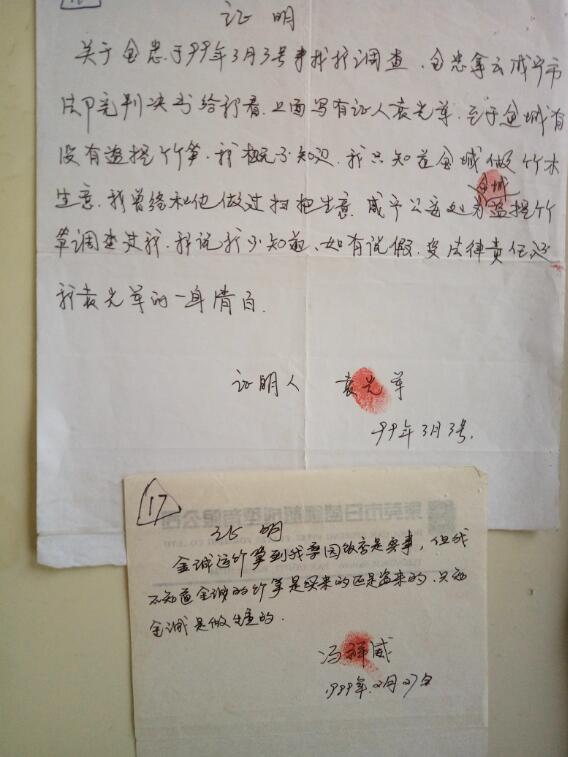 证 明
关于金忠于99年3月3号来找我调查，金忠拿云咸宁市
法院判决书给我看，上面写有证人袁光草，至于金城有
没有盗挖竹笋，我概不知边，我只知道金城做竹木
金城
生意，我曾经和他做过扫把生意，咸宁公安处为盗挖竹
草调查过我，我说我不知道，如有说假，受法律责任还
我袁光草的一身清白．
证明人 袁光草
99年3月3号．
17
证 明
金诚运竹笋到我 园 是实事，但我
不知道金诚的竹笋是买来的还是盗来的，只知
金诚是做生意的．
冯祥威
1999年2月27日